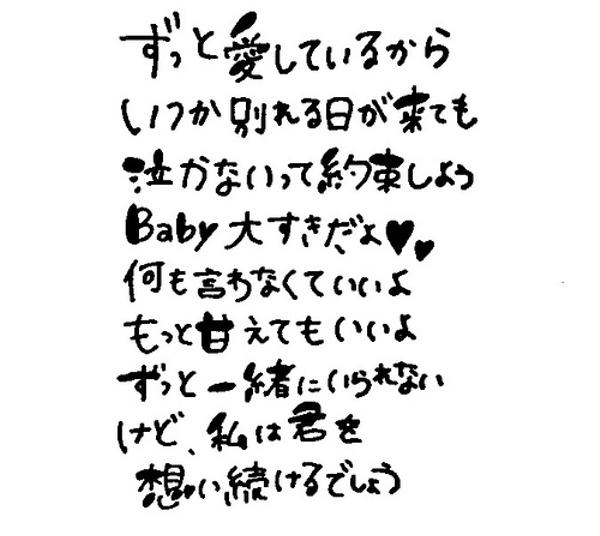 ずっと愛しているから
いつか別れる日が来ても
泣かないって約束しよう
Baby 大すきだよ♥♥
何も言わなくていいよ
もっと甘えてもいいよ
ずっと一緒にいられない
けど、私は君を
想い続けるでしょう